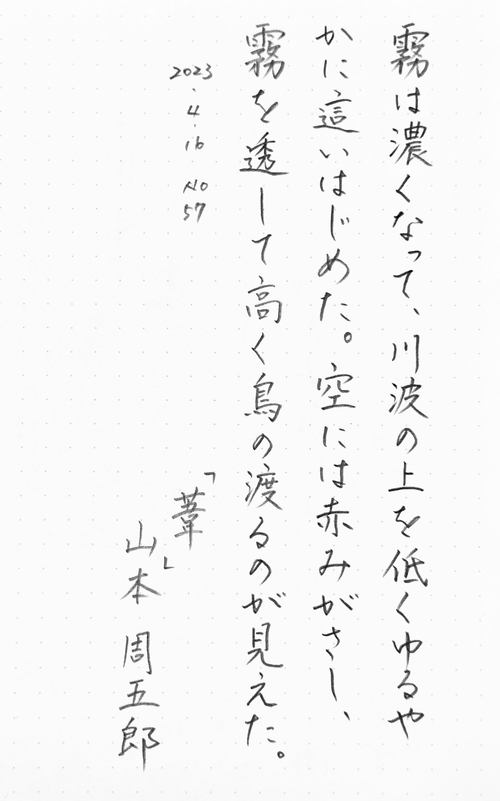 霧は濃くなって、川波の上を低くゆるや
かに這いはじめた。空には赤みがさし、
霧を透して高く鳥の渡るのが見えた。
2023.4.16 No57
「葦」
山本周五郎